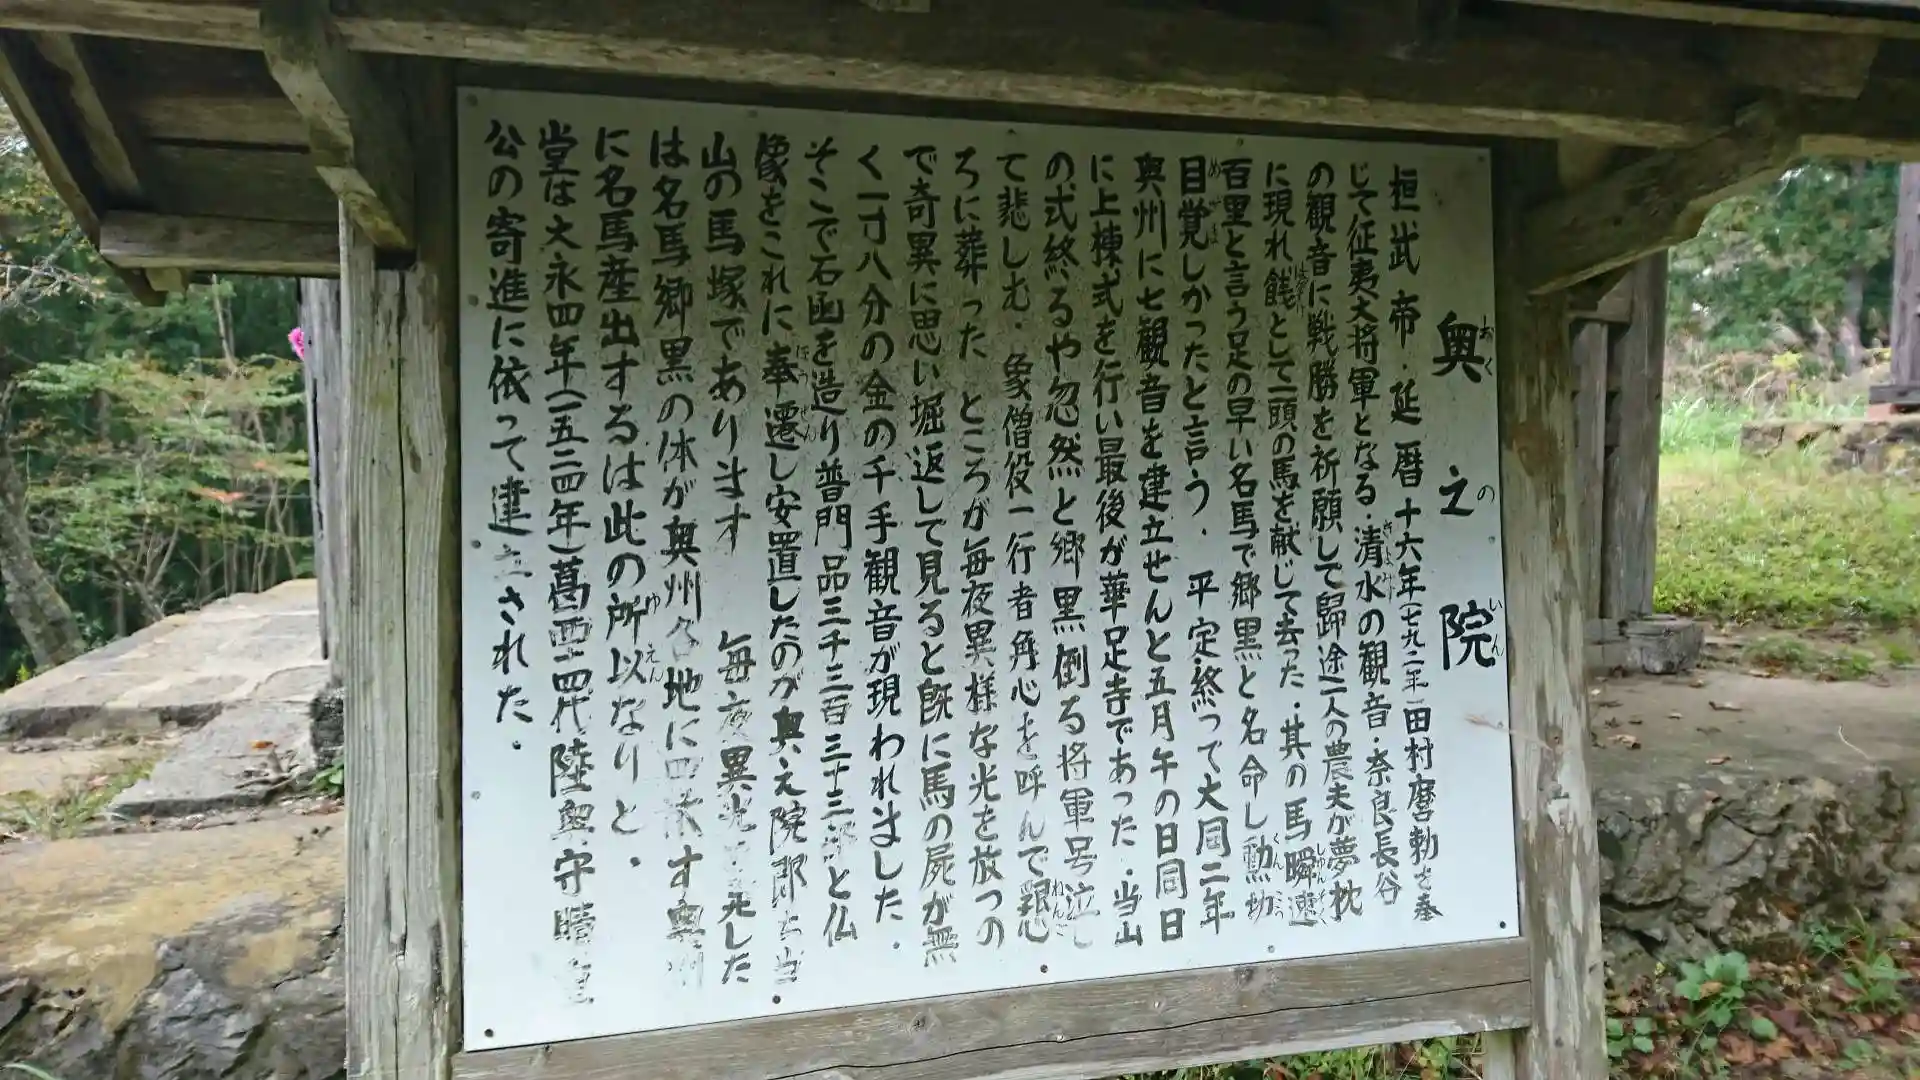 奥之院
桓武帝・延暦十六年(七九二年)田村麿勅を奉
じて征夷大将軍となる・清水の観音・奈良長谷
の観音に戦勝を祈願して帰途一人の農夫が夢枕
に現れ餞として一頭の馬を献じて去った・其の馬瞬速
百里と言う足の早い名馬で郷黒と名命し勲功
目覚しかったと言う・平定終って大同二年
奥州に七観音を建立せんと五月午の日同日
に上棟式を行い最後が華足寺であった・当山
の式終るや忽然と郷黒倒る将軍号泣し
て悲しむ・象僧役一行者角心を呼んで懇
ろに葬った ところが毎夜異様な光を放つの
で奇異に思い堀返して見ると既に馬の屍が無
く一寸八分の金の千手観音が現われました・
そこで石函を造り普門品三千三百三十三部と仏
像をこれに奉遷し安置したのが奥之院即ち当
山の馬塚であります 毎夜異光を発した
は名馬郷黒の体が奥州各地に四散す奥州
に名馬産出するは此の所以なりと・
堂は大永四年(一五二四年)葛西十四代陸奥守晴重
公の寄進に依って建立された・